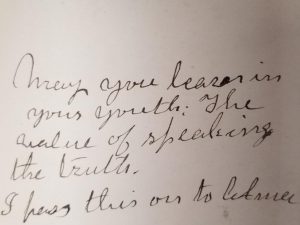 May you learn in
your youth: The
value of speaking
the truth.
I pass this on to Alma